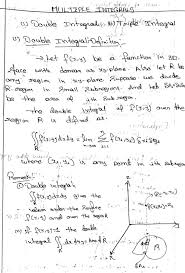 MULTIPLE INTEGRALS
i) Double Integral ii) Triple Integral
i) Double Integral: Definition:
→ Let f(x,y) be a function in 3D
face with domain as xy-plane. Also let R be
any region in xy-plane. Suppose we divide
R-region in small subregions. And let
be the area of ith Sub region.
the double integral of f(x,y) over the
region R is defined as:
∬f(x,y)dxdy = lim
R
where (xi, yi) is any point in ith subregion
Remark:
① Double integral
∬f(x,y)dxdy give the
R
volume under the Surface
f(x,y) and over the region
R
the double
integral ∬dxdy = Area of R
R